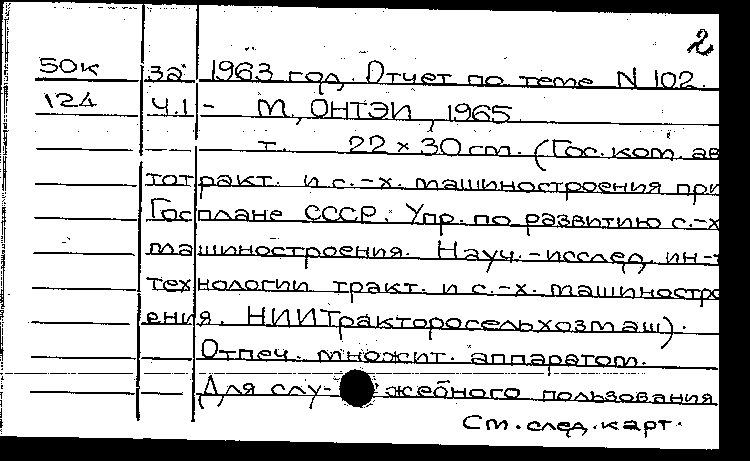 2
50к за 1963 год. Отчет по теме N 102.
124 Ч.1 - М., ОНТЭИ, 1965
т. 22 × 30 см. (Гос. ком. ав
тотракт. и с.-х. машиностроения при
Госплане СССР. Упр. по развитию с.-х
машиностроения. Науч.-исслед. ин-т
технологии тракт. и с.-х. машиностро
ения. НИИТракторосельхозмаш).
Отпеч. множит. аппаратом.
Для служебного пользования
См. след. карт.